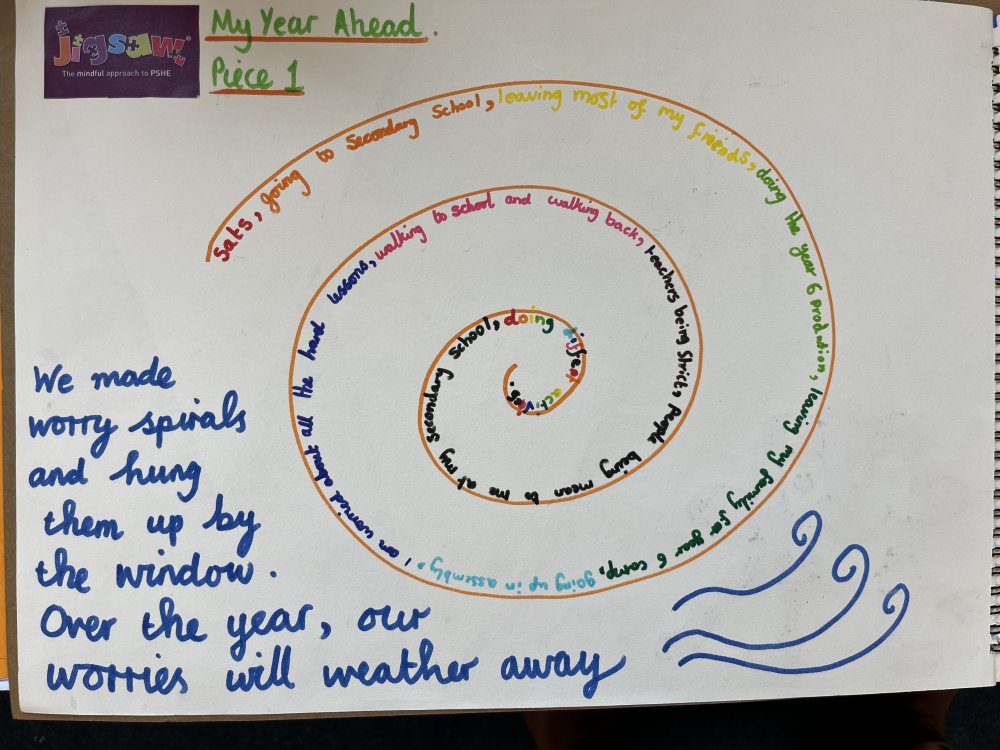 jigsaw
The mindful approach to PSHE
My Year Ahead.
Piece 1
sats, going to secondary school, leaving most of my friends, doing the year 6 production, leaving my family for year 6 camp, going up in assembly, I am worried about all the hard lessons, walking to school and walking back, teachers being strict, people being mean to me at my secondary school, doing
We made
worry spirals
and hung
them up by
the window.
Over the year, our
worries will weather away